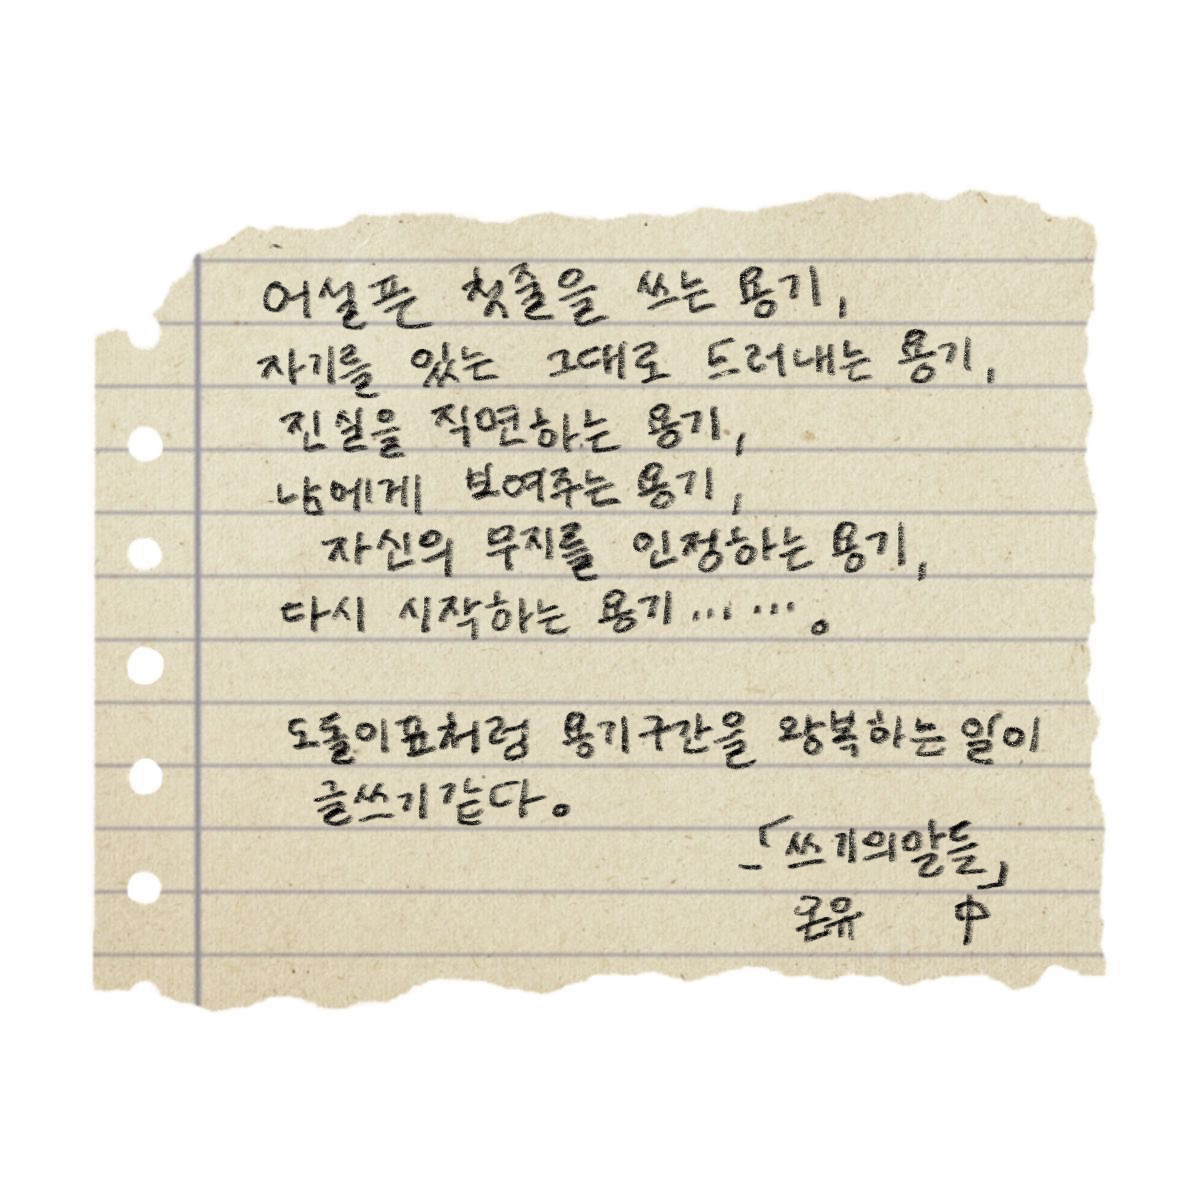 어설픈 첫줄을 쓰는 용기,
자기를 있는 그대로 드러내는 용기,
진실을 직면하는 용기,
남에게 보여주는 용기,
자신의 무지를 인정하는 용기,
다시 시작하는 용기... ... 。
도돌이표처럼 용기구간을 왕복하는 일이
글쓰기 같다。
-「쓰기의말들」
은유 中